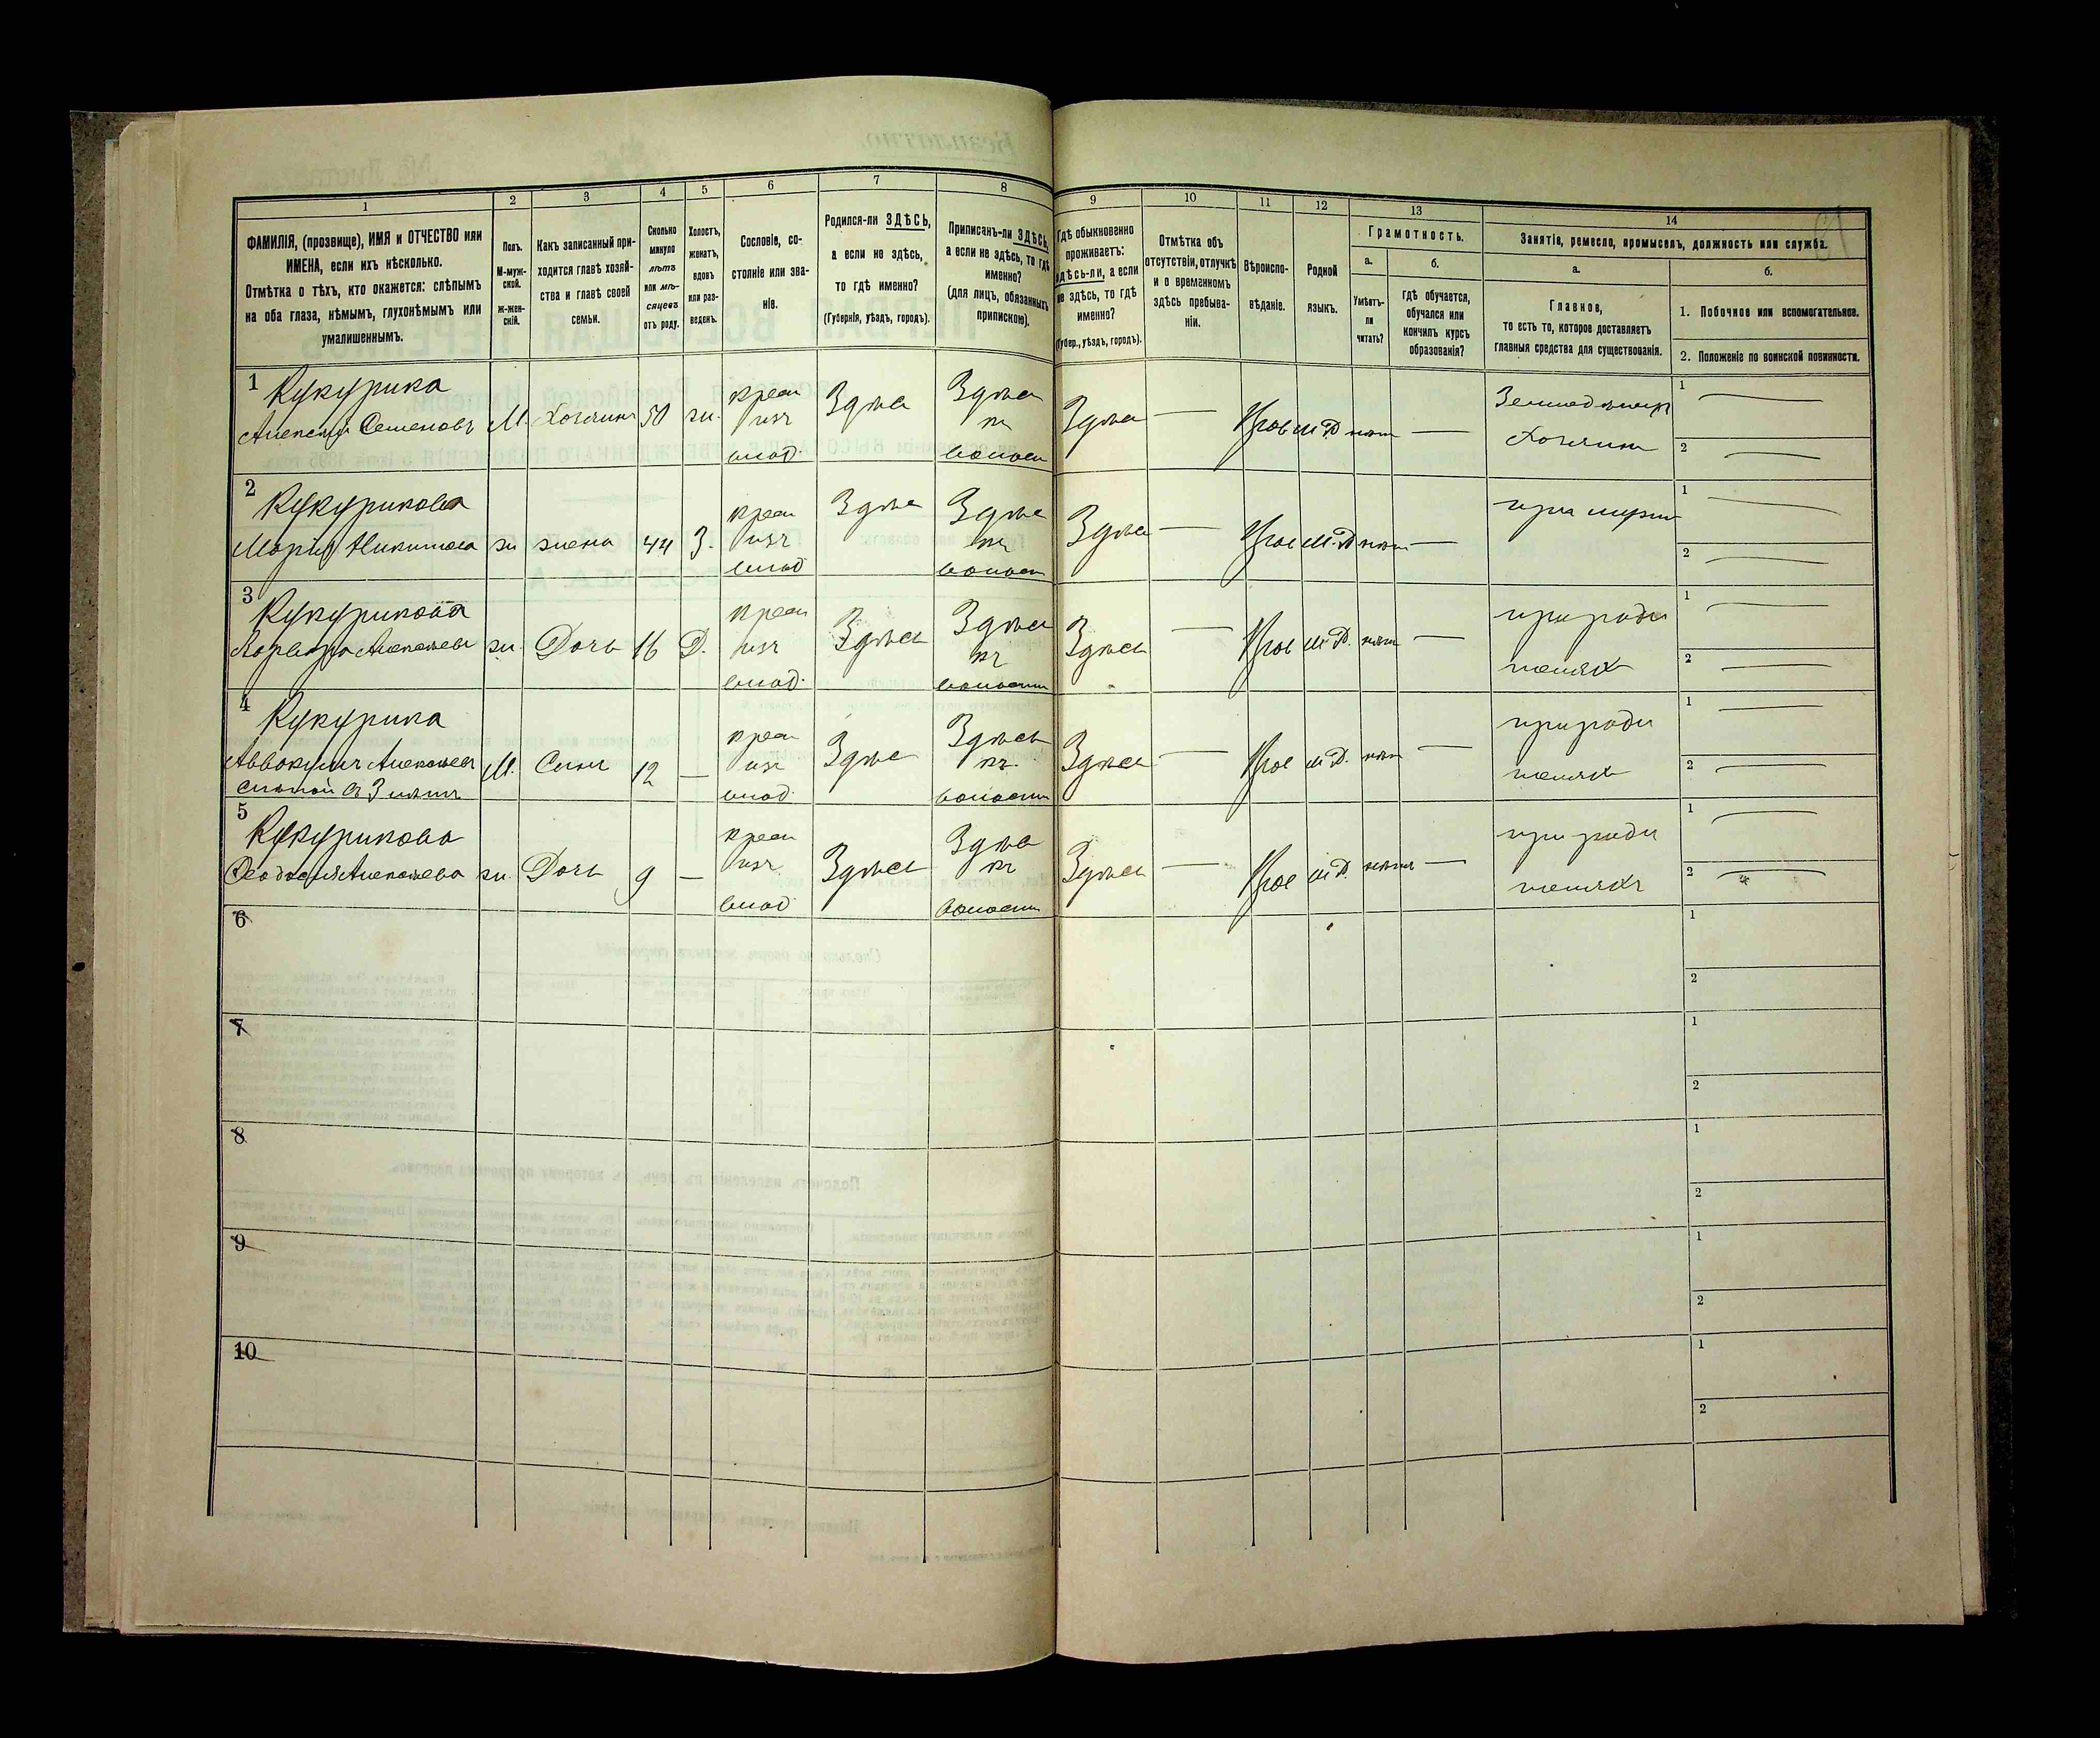 1 2 3 4 5 6 7 8 9 10 11 12 13 14
ФАМИЛІЯ, (прозвище), ИМЯ и ОТЧЕСТВО или
ИМЕНА, если ихъ нѣсколько.
Отмѣтка о тѣхъ, кто окажется: слѣпымъ
на оба глаза, нѣмымъ, глухонѣмымъ или
умалишеннымъ.
Полъ.
М-муж-
ской.
Ж-жен-
скій.
Какъ записанный при-
ходится главѣ хозяй-
ства и главѣ своей
семьи.
Сколько
минуло
лѣтъ
или мѣ-
сяцевъ
отъ роду.
Холостъ,
женатъ,
вдовъ
или раз-
веденъ.
Сословіе, со-
стояніе или зва-
ніе.
Родился-ли ЗДѢСЬ,
а если не здѣсь,
то гдѣ именно?
(Губернія, уѣздъ, городъ).
Приписанъ-ли ЗДѢСЬ,
а если не здѣсь, то гдѣ
именно?
(для лицъ, обязанныхъ
припискою).
Гдѣ обыкновенно
проживаетъ:
здѣсь-ли, а если
не здѣсь, то гдѣ
именно?
(Губер., уѣздъ, городъ).
Отмѣтка объ
отсутствіи, отлучкѣ
и о временномъ
здѣсь пребыва-
ніи.
Вѣроиспо-
вѣданіе.
Родной
языкъ.
Грамотность.
а.
Умѣетъ-
ли
читать?
б.
Гдѣ обучается,
обучался или
кончилъ курсъ
образованія?
Занятіе, ремесло, промыселъ, должность или служба.
а.
Главное,
то есть то, которое доставляетъ
главныя средства для существованія.
б.
1. Побочное или вспомогательное.
2. Положеніе по воинской повинности.
1 Кукурика
Алексѣй Семеновъ М. Хозяинъ 50 ж. крест изъ влад. Здѣсь Здѣсь къ волост Здѣсь — Прав м.Р нѣт — Земледѣлец Хозяин 1 — 2 —
2 Кукурикова
Марія Никитова ж жена 44 З. крест изъ влад Здѣсь Здѣсь къ волост Здѣсь — Прав м.Р нѣт — при мужи 1 — 2 —
3 Кукурикова
Варвара Алексѣева ж. Дочь 16 Д. крест изъ влад. Здѣсь Здѣсь къ волости Здѣсь — Прав м.Р. нѣт — при роди телях 1 — 2 —
4 Кукурика
Аввакумъ Алексѣев М. Сынъ 12 — крест изъ влад. Здѣсь Здѣсь къ волости Здѣсь — Прав м.Р. нѣт — при роди телях 1 — 2 —
слѣпой съ 3 лѣтъ
5 Кукурикова
Ѳеодосія Алексѣева ж. Дочь 9 — крест изъ влад Здѣсь Здѣсь къ волости Здѣсь — Прав м.Р. нѣтъ — при роди теляхъ 1 — 2 —
6 1 2
7 1 2
8 1 2
9 1 2
10 1 2